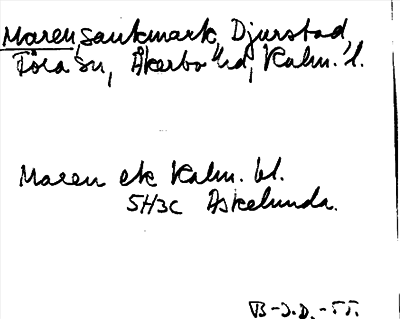 Maren, sankmark, Djurstad
Föra sn, Åkerbo hd, Kalm. l.
Maren ek Kalm. bl.
5H3c Askelunda.
B-J.D.-55.